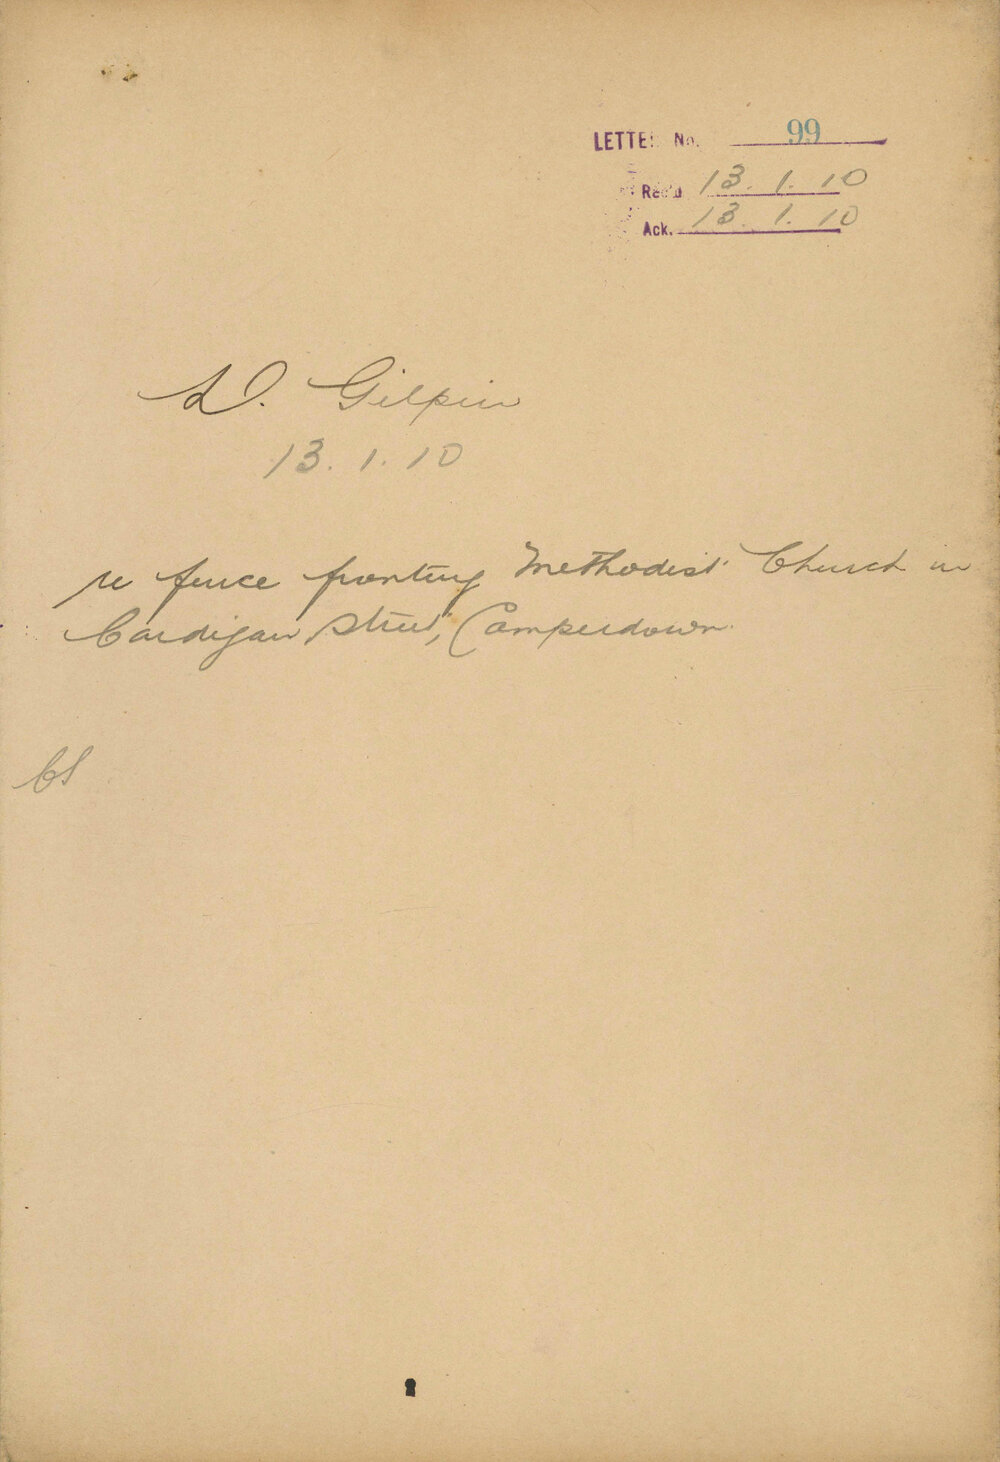 LETTER No. 99
Rec'd 13. 1. 10
Ack. 13. 1. 10
D. Gilpin
13. 1. 10
re fence fronting Methodist Church in
Cardigan Street, Camperdown.
CS